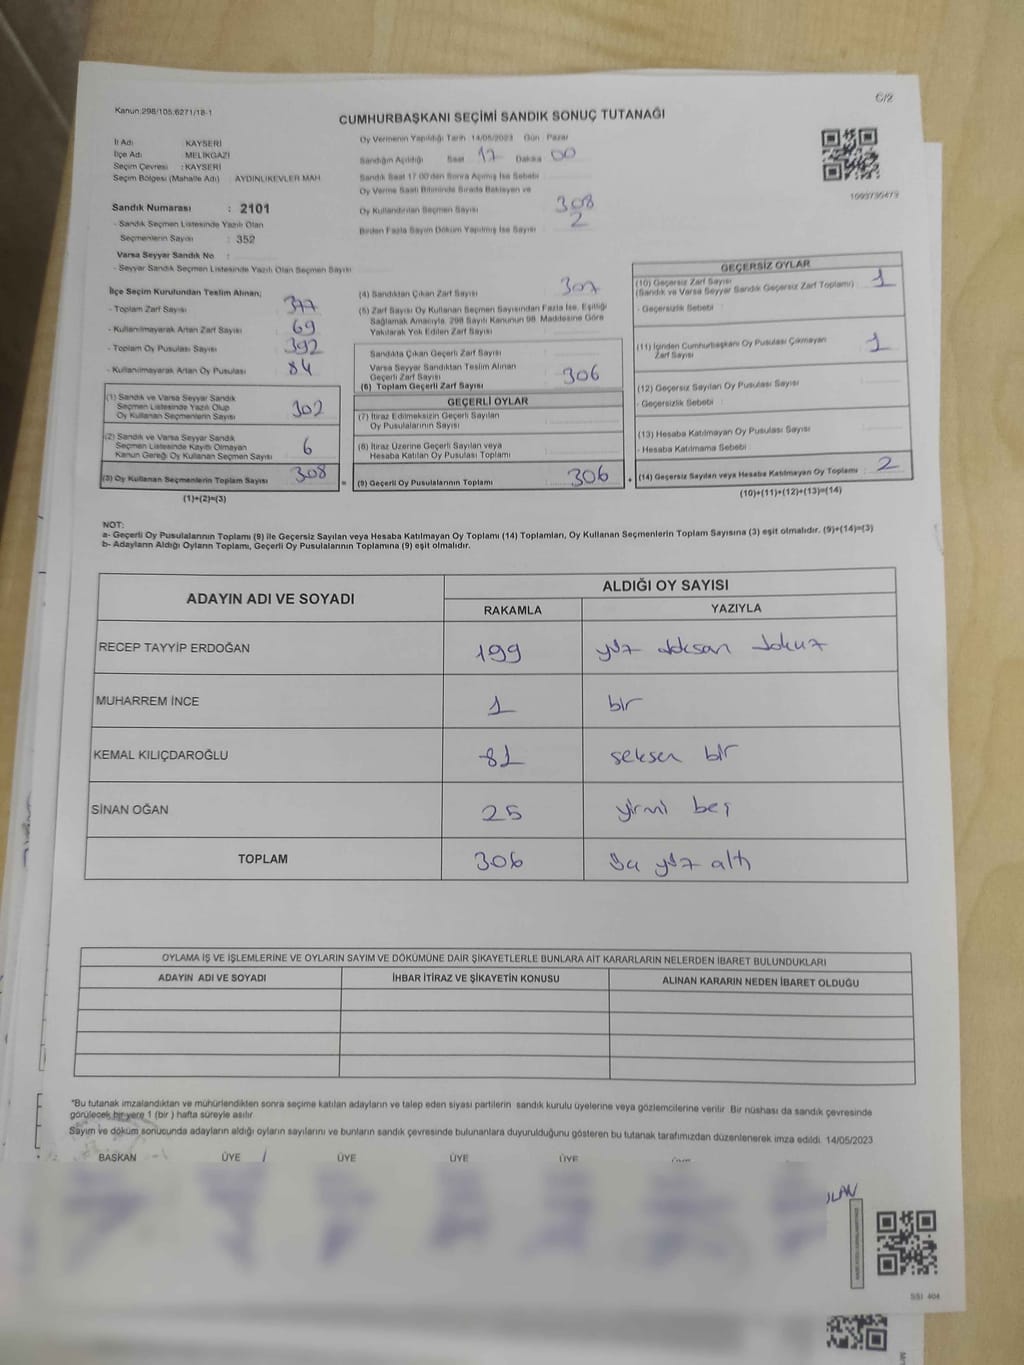 Kanun:298/105,6271/18-1
C/2
CUMHURBAŞKANI SEÇİMİ SANDIK SONUÇ TUTANAĞI
İl Adı : KAYSERİ
İlçe Adı : MELİKGAZİ
Seçim Çevresi : KAYSERİ
Seçim Bölgesi (Mahalle Adı) : AYDINLIKEVLER MAH
Sandık Numarası : 2101
- Sandık Seçmen Listesinde Yazılı Olan
Seçmenlerin Sayısı : 352
Varsa Seyyar Sandık No :
- Seyyar Sandık Seçmen Listesinde Yazılı Olan Seçmen Sayısı
Oy Vermenin Yapıldığı Tarih 14/05/2023 Gün Pazar
Sandığın Açıldığı Saat 17 Dakika 00
Sandık Saat 17:00'den Sonra Açılmış İse Sebebi
Oy Verme Saati Bitiminde Sırada Bekleyen ve
Oy Kullandırılan Seçmen Sayısı 308
Birden Fazla Sayım Döküm Yapılmış İse Sayısı 2
1093790479
İlçe Seçim Kurulundan Teslim Alınan;
- Toplam Zarf Sayısı 377
- Kullanılmayarak Artan Zarf Sayısı 69
- Toplam Oy Pusulası Sayısı 392
- Kullanılmayarak Artan Oy Pusulası 84
(1) Sandık ve Varsa Seyyar Sandık
Seçmen Listesinde Yazılı Olup
Oy Kullanan Seçmenlerin Sayısı 302
(2) Sandık ve Varsa Seyyar Sandık
Seçmen Listesinde Kayıtlı Olmayan
Kanun Gereği Oy Kullanan Seçmen Sayısı 6
(3) Oy Kullanan Seçmenlerin Toplam Sayısı 308
(1)+(2)=(3)
(4) Sandıktan Çıkan Zarf Sayısı 307
(5) Zarf Sayısı Oy Kullanan Seçmen Sayısından Fazla İse, Eşitliği
Sağlamak Amacıyla, 298 Sayılı Kanunun 98. Maddesine Göre
Yakılarak Yok Edilen Zarf Sayısı
Sandıkta Çıkan Geçerli Zarf Sayısı
Varsa Seyyar Sandıktan Teslim Alınan
Geçerli Zarf Sayısı
(6) Toplam Geçerli Zarf Sayısı 306
GEÇERLİ OYLAR
(7) İtiraz Edilmeksizin Geçerli Sayılan
Oy Pusulalarının Sayısı
(8) İtiraz Üzerine Geçerli Sayılan veya
Hesaba Katılan Oy Pusulası Toplamı
= (9) Geçerli Oy Pusulalarının Toplamı 306 +
GEÇERSİZ OYLAR
(10) Geçersiz Zarf Sayısı
(Sandık ve Varsa Seyyar Sandık Geçersiz Zarf Toplamı) 1
- Geçersizlik Sebebi :
(11) İçinden Cumhurbaşkanı Oy Pusulası Çıkmayan
Zarf Sayısı 1
(12) Geçersiz Sayılan Oy Pusulası Sayısı
- Geçersizlik Sebebi :
(13) Hesaba Katılmayan Oy Pusulası Sayısı
- Hesaba Katılmama Sebebi :
(14) Geçersiz Sayılan veya Hesaba Katılmayan Oy Toplamı 2
(10)+(11)+(12)+(13)=(14)
NOT:
a- Geçerli Oy Pusulalarının Toplamı (9) ile Geçersiz Sayılan veya Hesaba Katılmayan Oy Toplamı (14) Toplamları, Oy Kullanan Seçmenlerin Toplam Sayısına (3) eşit olmalıdır. (9)+(14)=(3)
b- Adayların Aldığı Oyların Toplamı, Geçerli Oy Pusulalarının Toplamına (9) eşit olmalıdır.
ADAYIN ADI VE SOYADI ALDIĞI OY SAYISI
RAKAMLA YAZIYLA
RECEP TAYYİP ERDOĞAN 199 yüz doksan dokuz
MUHARREM İNCE 1 bir
KEMAL KILIÇDAROĞLU 81 seksen bir
SİNAN OĞAN 25 yirmi beş
TOPLAM 306 üç yüz altı
OYLAMA İŞ VE İŞLEMLERİNE VE OYLARIN SAYIM VE DÖKÜMÜNE DAİR ŞİKAYETLERLE BUNLARA AİT KARARLARIN NELERDEN İBARET BULUNDUKLARI
ADAYIN ADI VE SOYADI İHBAR İTİRAZ VE ŞİKAYETİN KONUSU ALINAN KARARIN NEDEN İBARET OLDUĞU
*Bu tutanak imzalandıktan ve mühürlendikten sonra seçime katılan adayların ve talep eden siyasi partilerin sandık kurulu üyelerine veya gözlemcilerine verilir. Bir nüshası da sandık çevresinde
görülecek bir yere 1 (bir ) hafta süreyle asılır.
Sayım ve döküm sonucunda adayların aldığı oyların sayılarını ve bunların sandık çevresinde bulunanlara duyurulduğunu gösteren bu tutanak tarafımızdan düzenlenerek imza edildi. 14/05/2023
BAŞKAN ÜYE ÜYE ÜYE ÜYE
SSI 404